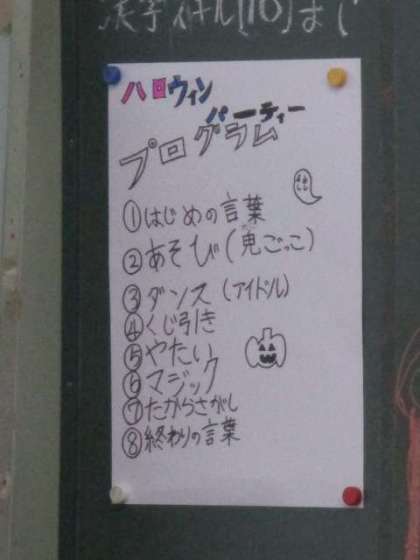 漢字スキル(10)まで
ハロウィン
パーティー
プログラム
①はじめの言葉
②あそび(鬼ごっこ)
③ダンス(アイドル)
④くじ引き
⑤やたい
⑥マジック
⑦たからさがし
⑧終わりの言葉